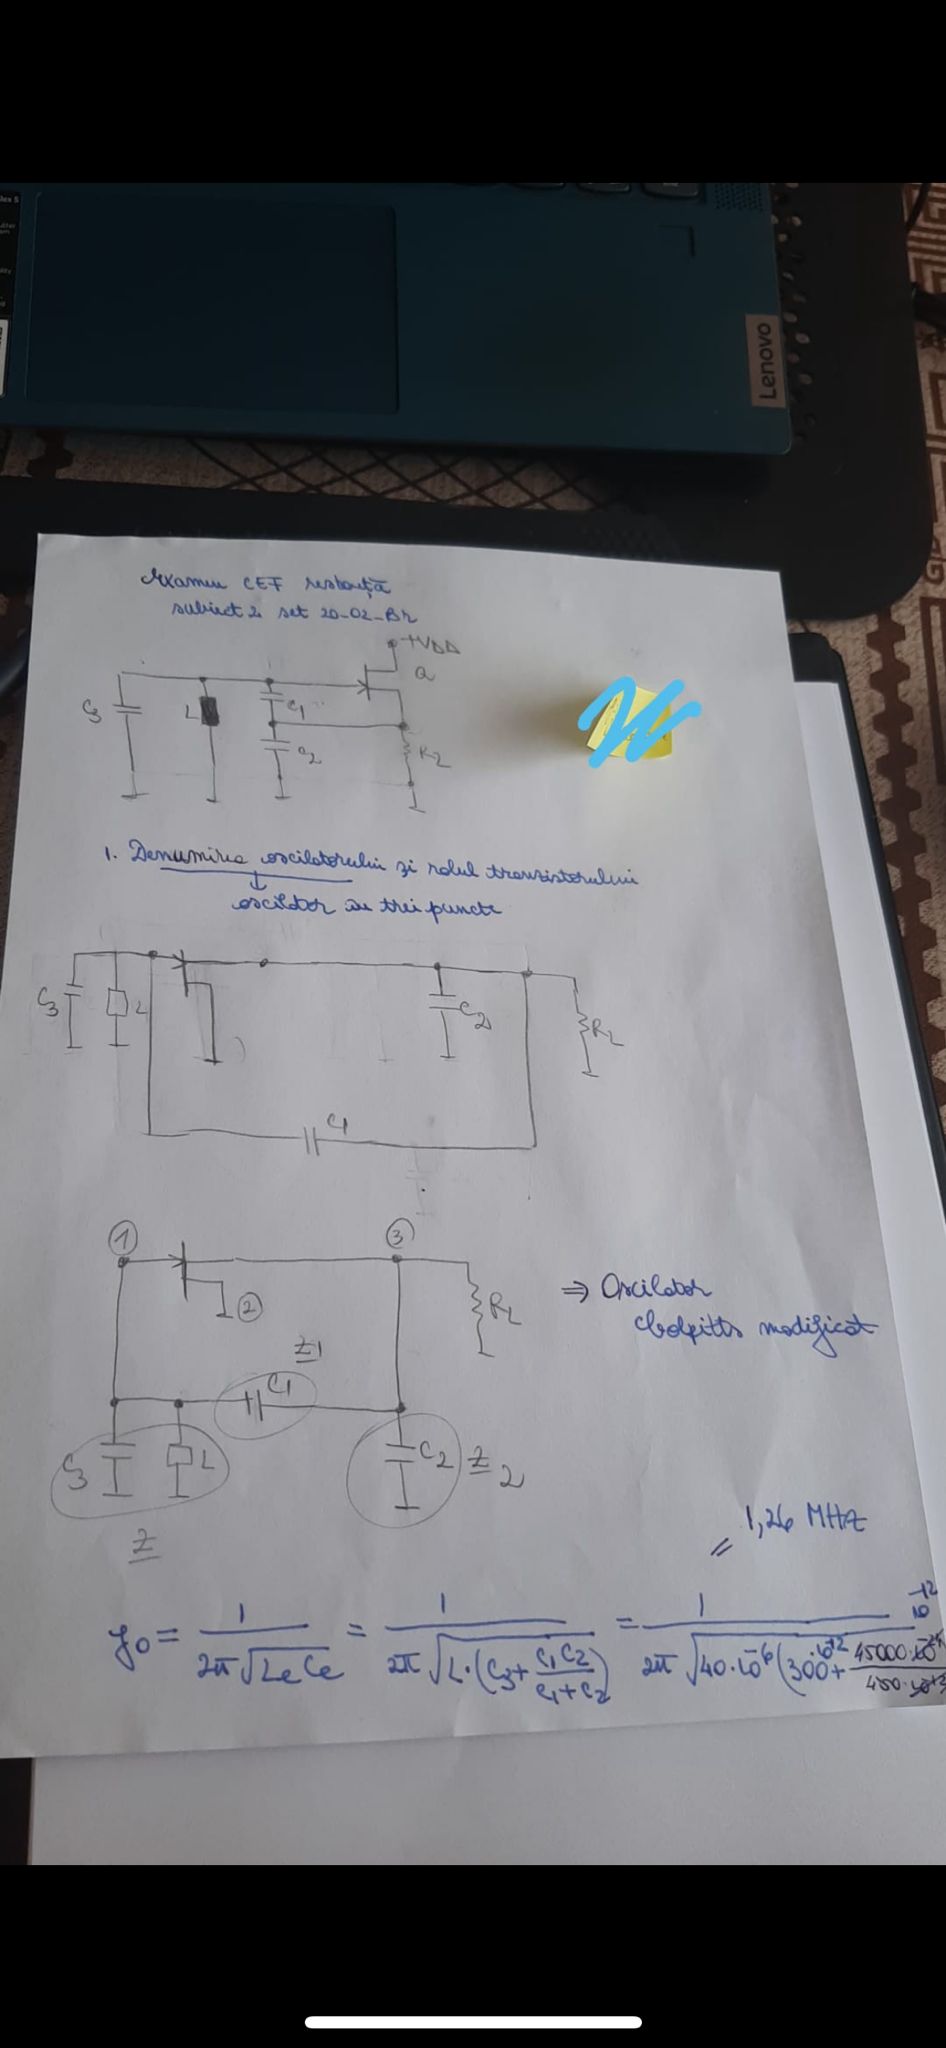 Lenovo
Examen CEF restanță
subiect 2 set 20-02-Br
+VDD
Q
C3
L
C1
C2
RL
1. Denumirea oscilatorului și rolul tranzistorului
oscilator in trei puncte
C3
L
C2
RL
C1
1
3
2
RL
⇒ Oscilator
Colpitts modificat
Z1
C1
C3
L
C2
Z2
Z
= 1,26 MHz
f0 = 1 / 2π√LeCe = 1 / 2π√L·(C3 + C1C2 / C1+C2) = 1 / 2π√40·10⁻⁶(300·10⁻¹² + 45000 / 450 10⁻¹²